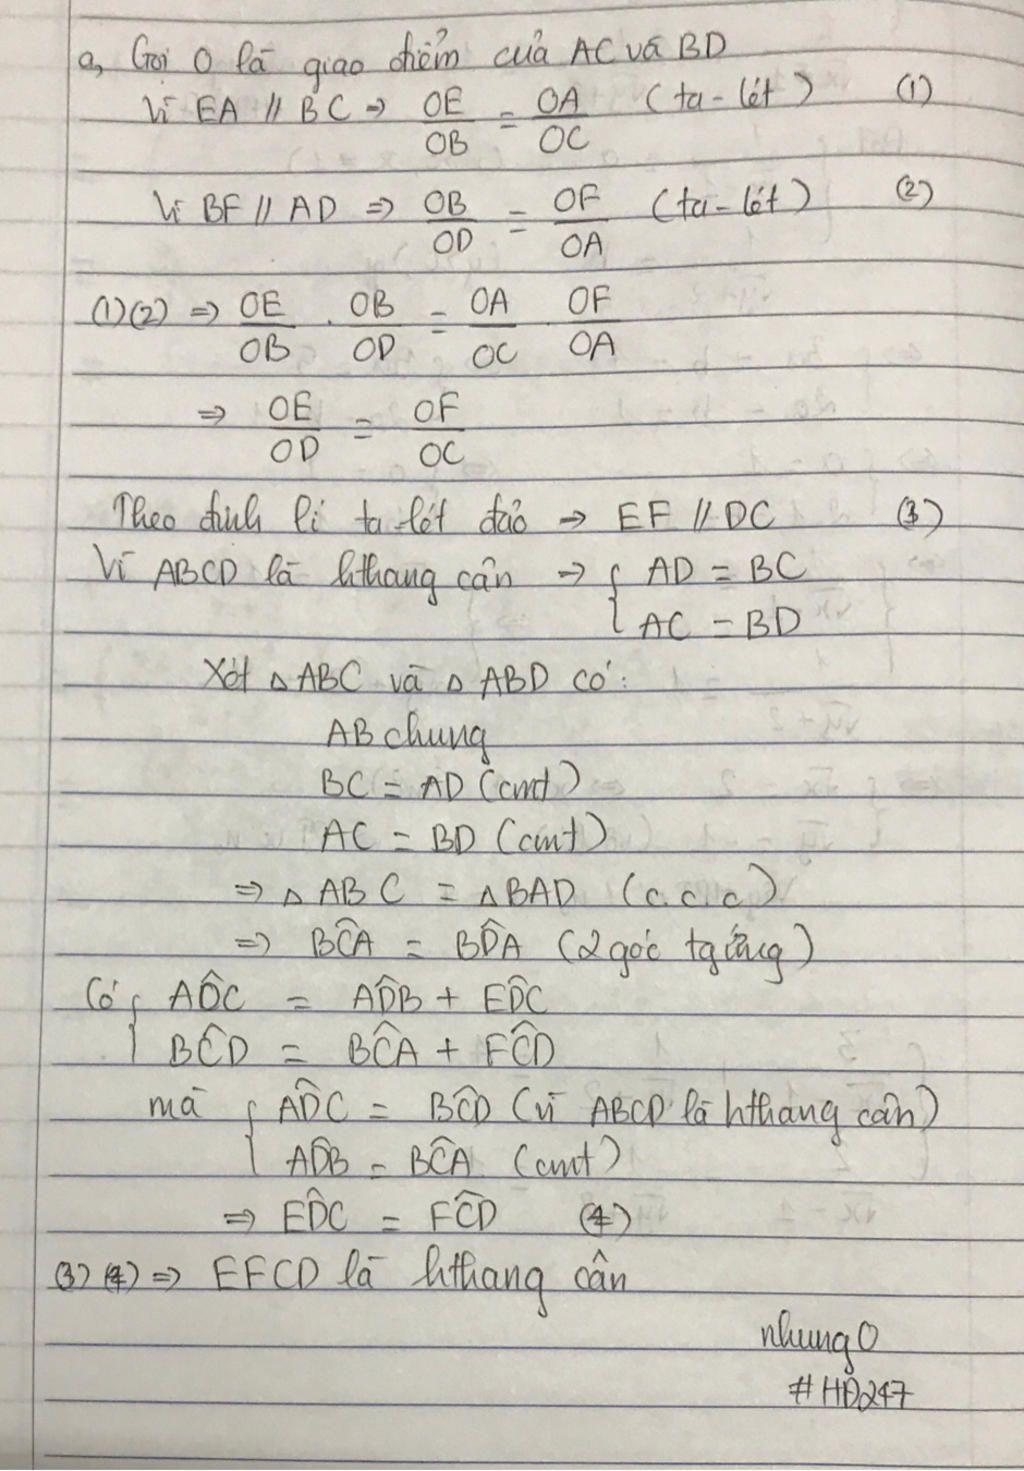 a, Gọi O là giao điểm của AC và BD
Vì EA // BC => OE/OB = OA/OC (ta-lét) (1)
Vì BF // AD => OB/OD = OF/OA (ta-lét) (2)
(1)(2) => OE/OB . OB/OD = OA/OC . OF/OA
=> OE/OD = OF/OC
Theo định lí ta lét đảo => EF // DC (3)
Vì ABCD là hthang cân => { AD = BC
AC = BD
Xét △ABC và △ABD có:
AB chung
BC = AD (cmt)
AC = BD (cmt)
=> △ABC = △BAD (c.c.c)
=> BĈA = BD̂A (2 góc tg ứng)
Có { AD̂C = AD̂B + ED̂C
BĈD = BĈA + FĈD
mà { AD̂C = BĈD (vì ABCD là hthang cân)
AD̂B = BĈA (cmt)
=> ED̂C = FĈD (4)
(3) (4) => EFCD là hthang cân
nhung0
#HĐ247